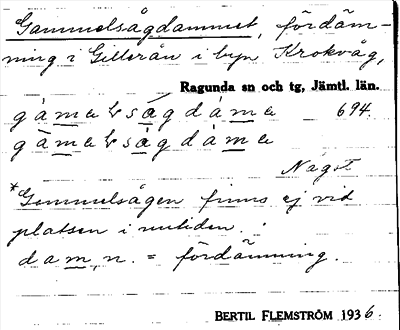 Gammelsågdammet, fördäm-
ning i Gillerån i byn Krokvåg,
Ragunda sn och tg, Jämtl. län.
694.
Något
*Gammelsågen finns ej vid
platsen i nutiden.
damn. = fördämning.
BERTIL FLEMSTRÖM 1936.